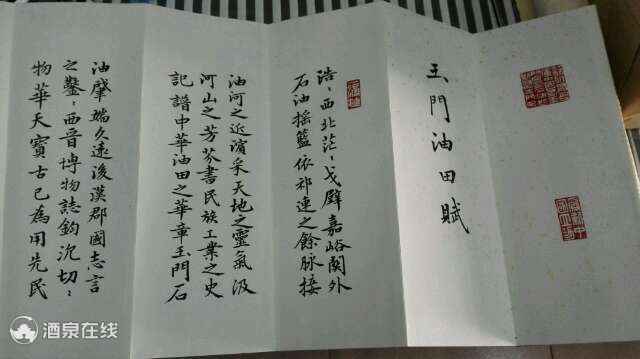 玉門油田賦
浩〻西北茫〻戈壁嘉峪關外
石油摇籃依祁連之餘脉接
油河之近濱采天地之靈氣汲
河山之芳芬書民族工業之史
記譜中華油田之華章玉門石
油肇端久遠後漢郡國志言
之鑿〻西晋博物誌鈎沉切〻
物華天寶古已為用先民
酒泉在线